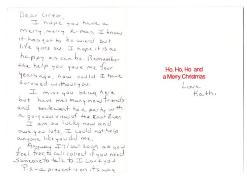 Dear Greg,
I hope you have a
merry, merry X-mas. I know
it has got to be weird but
life goes on. I hope it is as
happy as can be. Remember
the help you gave me four
years ago, how could I have
survived without you.
I miss you being here
but have met many new friends
and
a gorgeous view of the
I am so lucky now and
owe you lots. I could not help
anyone like you did me.
Anyway I'll as always
feel free to call collect if you need
someone to talk to. I Love you
P.S. a present on its way
Ho, Ho, Ho and
a Merry Christmas
Love
Beth.